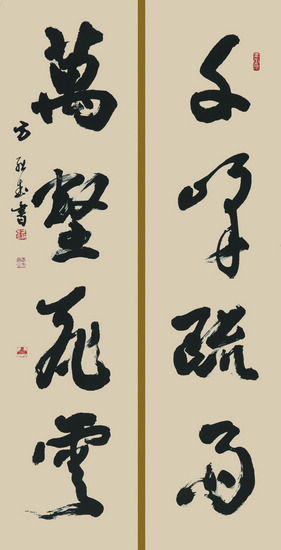 千峰疏雨
萬壑飛雲
方 書